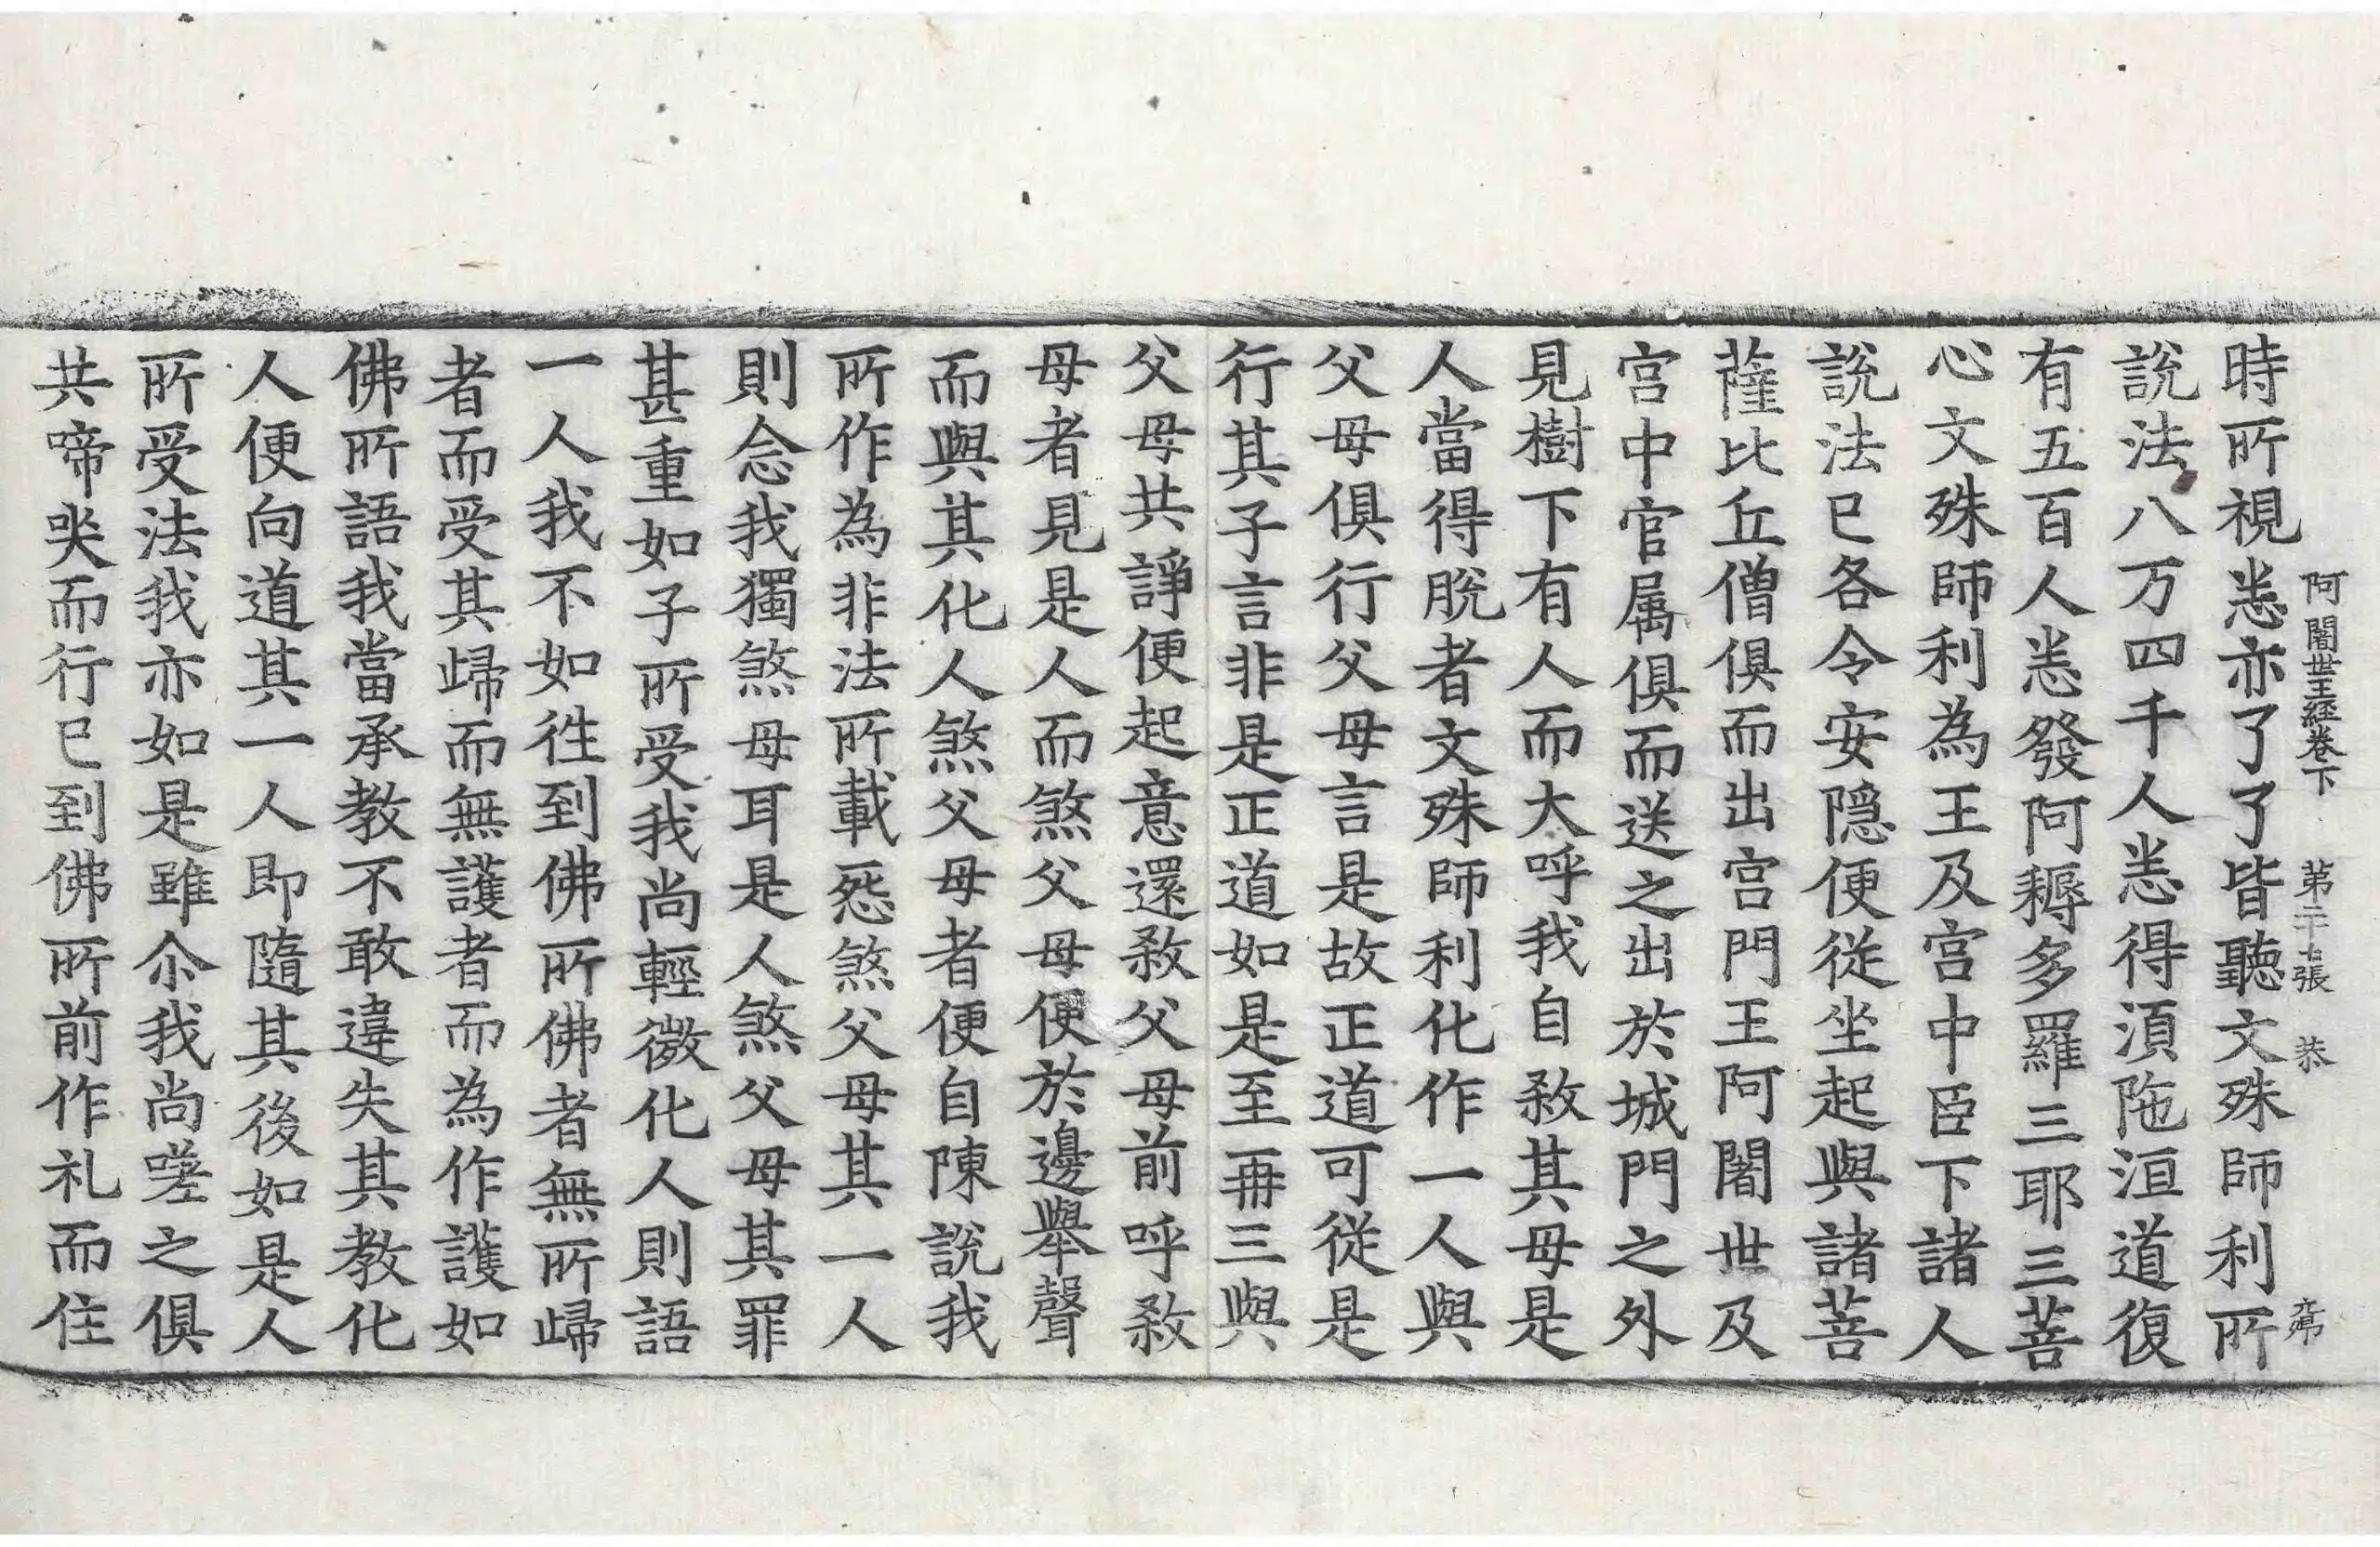 阿闍世王經卷下　第二十七張　恭
時所視悉亦了了皆聽文殊師利所
說法八万四千人悉得湏陁洹道復
有五百人悉發阿耨多羅三耶三菩
心文殊師利為王及宮中臣下諸人
說法已各令安隱便從坐起與諸菩
薩比丘僧俱而出宮門王阿闍世及
宮中官属俱而送之出於城門之外
見樹下有人而大呼我自煞其母是
人當得脫者文殊師利化作一人與
父母俱行父母言是故正道可從是
行其子言非是正道如是至再三與
父母共諍便起意還煞父母前呼煞
母者見是人而煞父母便於邊舉聲
而與其化人煞父母者便自陳說我
所作為非法所載惌煞父母其一人
則念我獨煞母耳是人煞父母其罪
甚重如子所受我尚輕微化人則語
一人我不如徃到佛所佛者無所歸
者而受其歸而無護者而為作護如
佛所語我當承教不敢違失其教化
人便向道其一人即隨其後如是人
所受法我亦如是雖尒我尚嗟之俱
共啼哭而行已到佛所前作礼而住